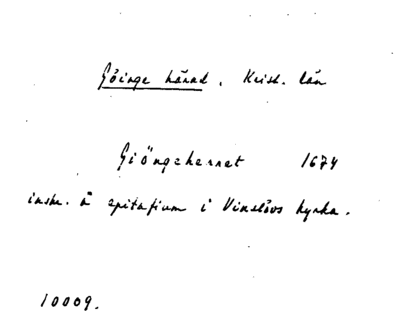 Göinge härad. Krist. län
Giöngeherret 1674
inskr. å epitafium i Vinslövs kyrka.
10009.